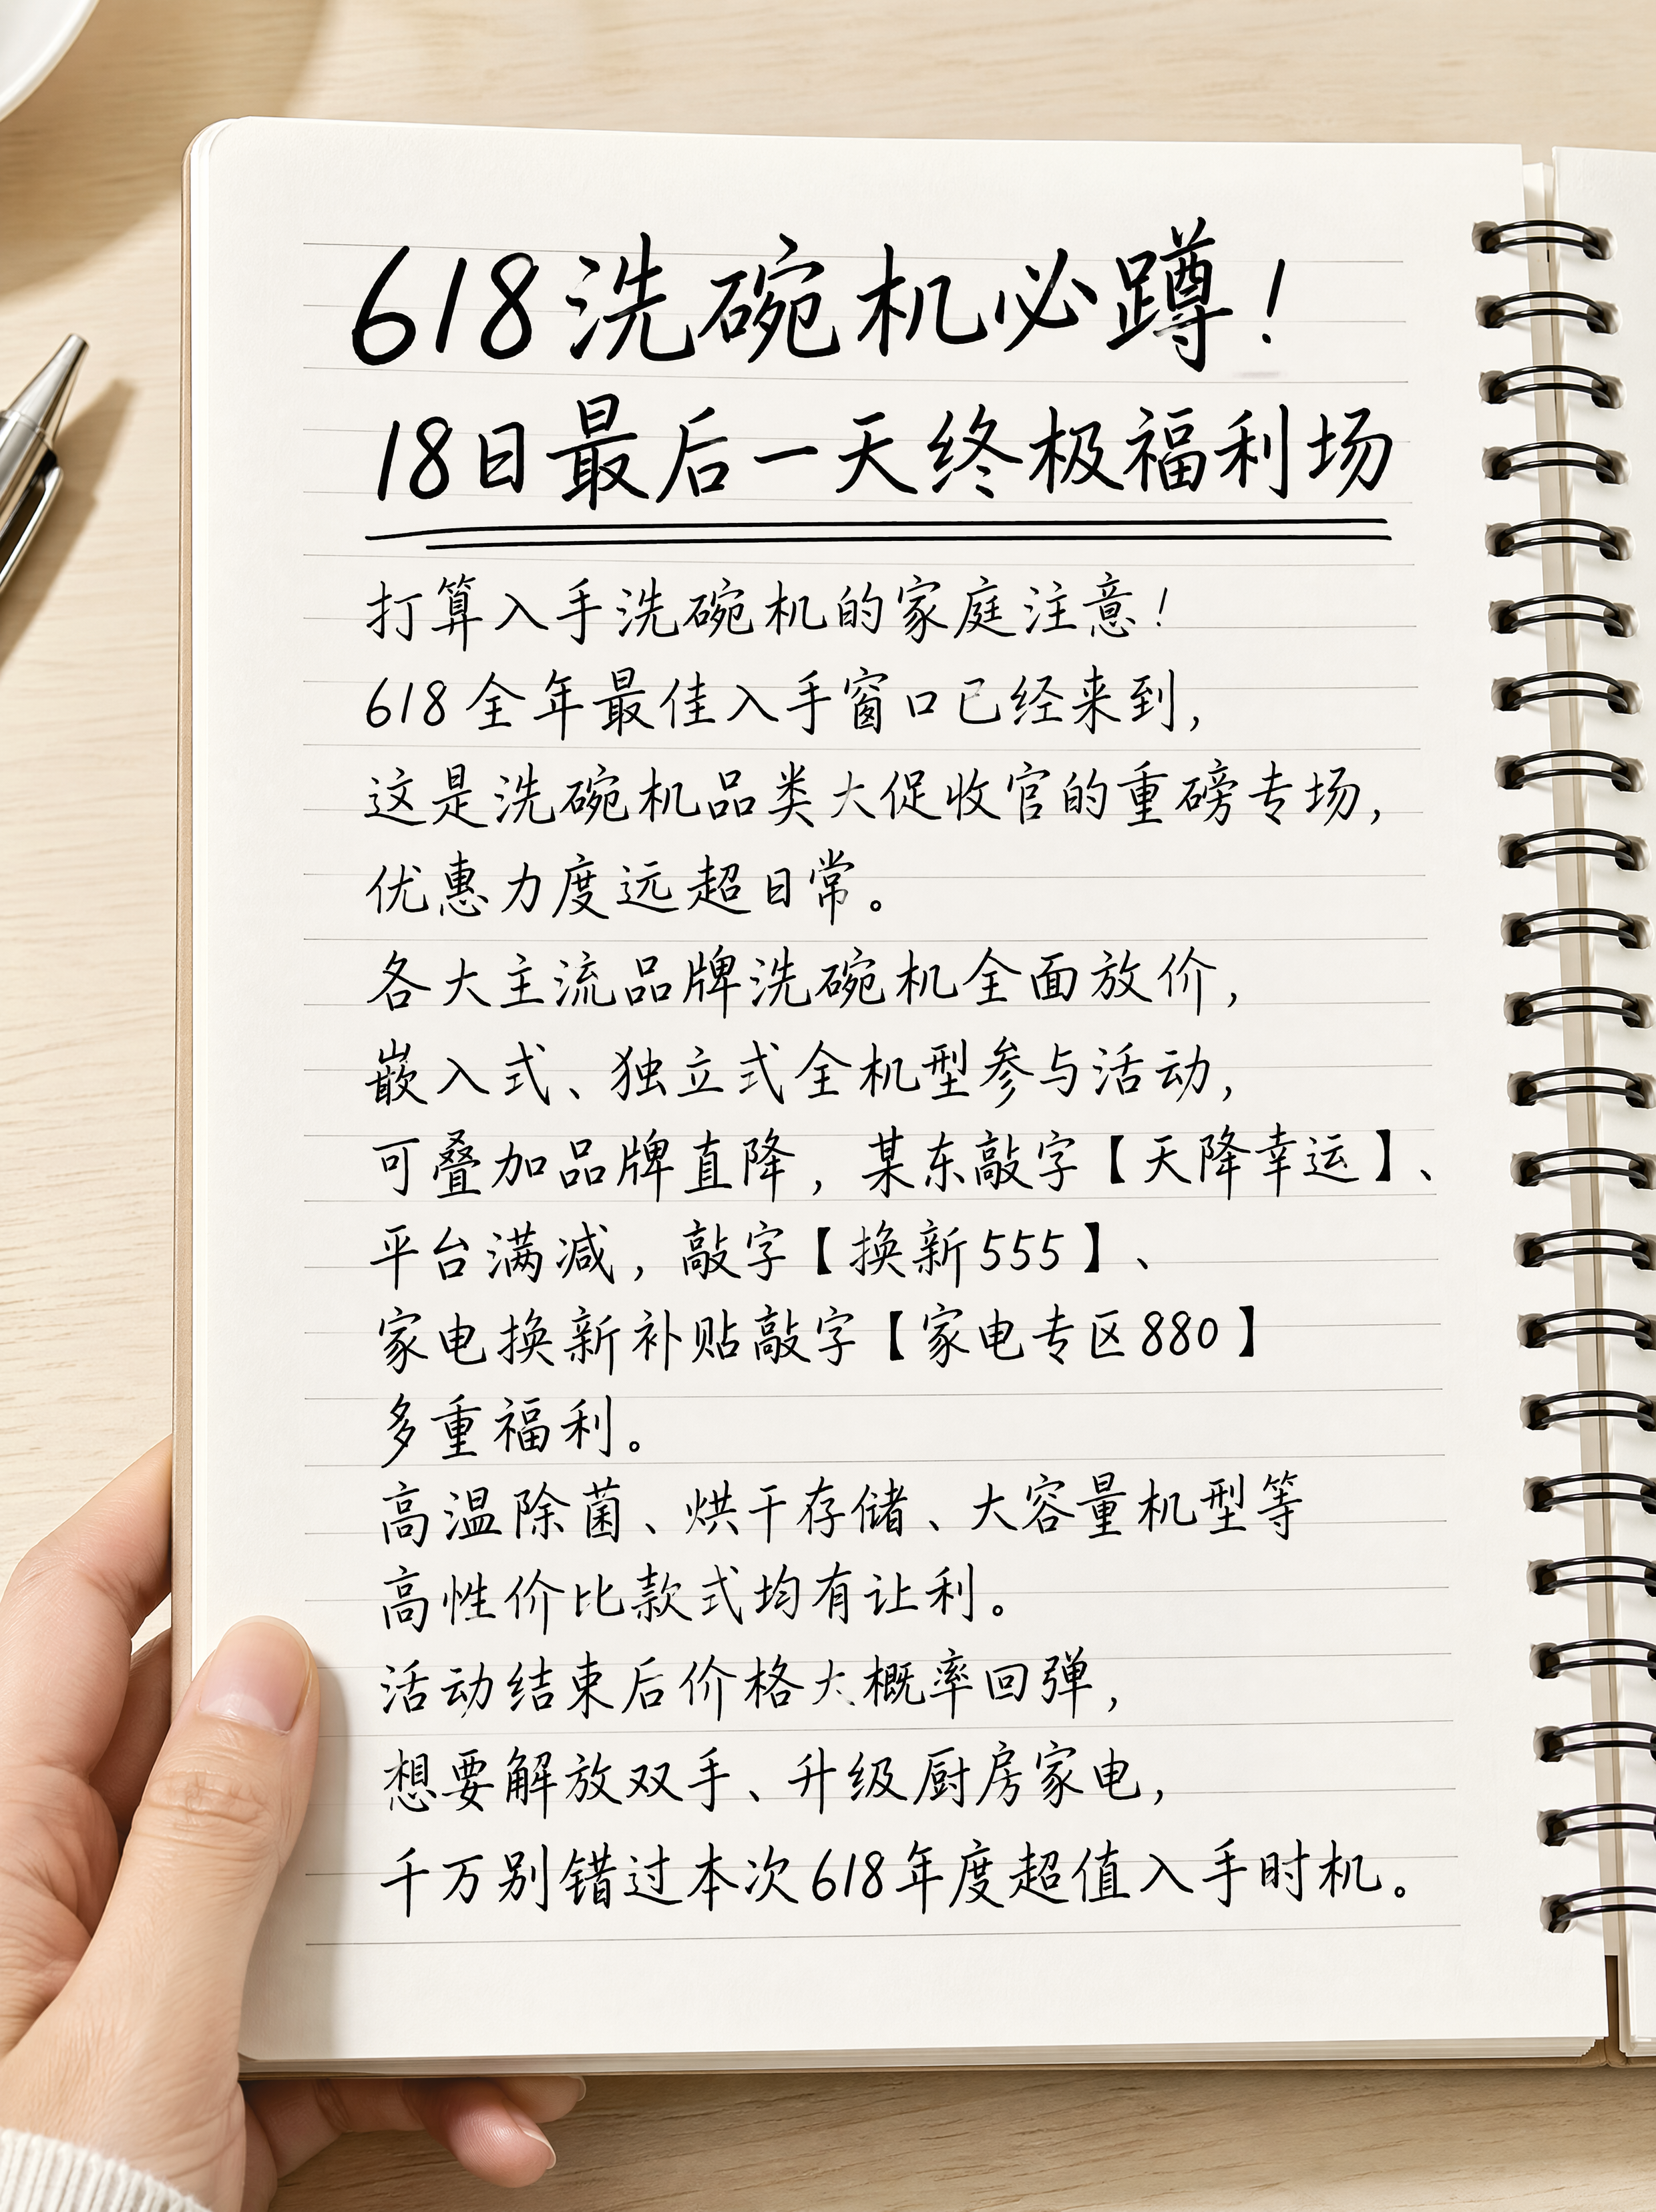 618洗碗机必蹲!
18日最后一天终极福利场
打算入手洗碗机的家庭注意!
618全年最佳入手窗口已经来到,
这是洗碗机品类大促收官的重磅专场,
优惠力度远超日常。
各大主流品牌洗碗机全面放价,
嵌入式、独立式全机型参与活动,
可叠加品牌直降,某东敲字【天降幸运】、
平台满减,敲字【换新555】、
家电换新补贴敲字【家电专区880】
多重福利。
高温除菌、烘干存储、大容量机型等
高性价比款式均有让利。
活动结束后价格大概率回弹,
想要解放双手、升级厨房家电,
千万别错过本次618年度超值入手时机。